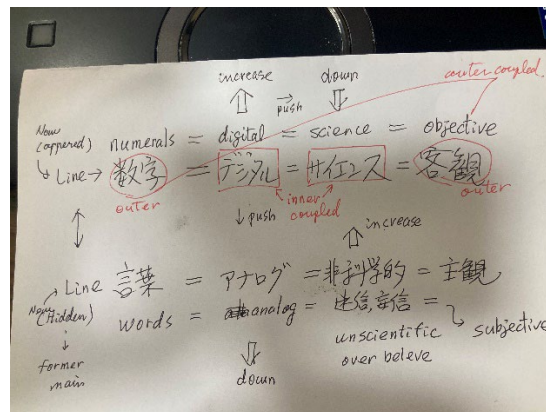 increase down outer coupled.
push
Now (appered) numerals = digital = science = objective
Line → 数字 = デジタル = サイエンス = 客観
outer push inner coupled outer
increase
Line 言葉 = アナログ = 非科学的 = 主観
Now (Hidden) words = analog = 迷信,妄信 = subjective
former main unscientific
over beleve
down